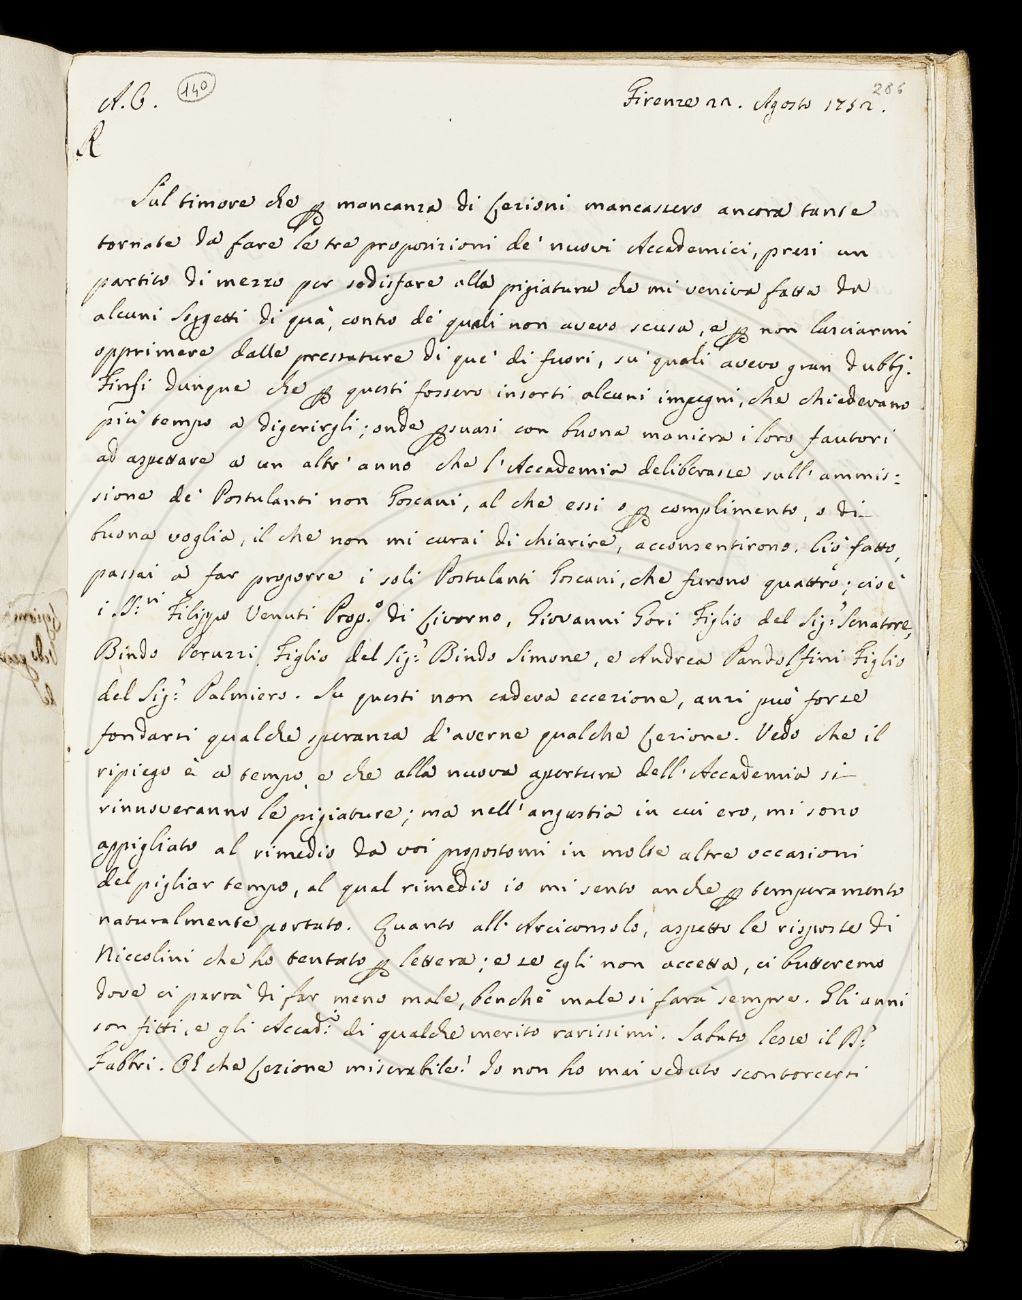 A. C. 140 Firenze 22. Agosto 1752. 286
R
Sul timore che p mancanza di Lezioni mancassero ancora tante
tornate da fare le tre proposizioni de' nuovi Accademici, presi un
partito di mezzo per sodisfare alla pigiatura che mi veniva fatta da
alcuni Soggetti di quà, conto de' quali non avevo scusa, e p non lasciarmi
opprimere dalle pressature di que' di fuori, su' quali avevo gran dubbj.
Finsi dunque che p questi fossero insorti alcuni impegni, che chiedevano
più tempo a digerirgli; onde psuasi con buona maniera i loro fautori
ad aspettare a un altr' anno che l'Accademia deliberasse sull' ammis:
sione de' Postulanti non Toscani, al che essi o p complimento, o di
buona voglia, il che non mi curai di chiarire, acconsentirono. Ciò fatto,
passai a far proporre i soli Postulanti Toscani, che furono quattro; cioè
i SS.ri Filippo Venuti Prop.o di Livorno, Giovanni Gori Figlio del Sig.r Senatore,
Bindo Peruzzi Figlio del Sig.r Bindo Simone, e Andrea Pandolfini Figlio
del Sig.r Palmiero. Su questi non cadeva eccezione, anzi può forse
fondarsi qualche speranza d'averne qualche Lezione. Vedo che il
ripiego è a tempo e che alla nuova apertura dell'Accademia si
rinnoveranno le pigiature; ma nell' angustia in cui ero, mi sono
appigliato al rimedio da voi propostomi in molte altre occasioni
del pigliar tempo, al qual rimedio io mi sento anche p temperamento
naturalmente portato. Quanto all' Arciconsolo, aspetto le risposte di
Niccolini che ho tentato p lettera; e se egli non accetta, ci butteremo
dove ci parrà di far meno male, benchè male si farà sempre. Gli anni
son fitti, e gli Accad.ci di qualche merito rarissimi. Sabato lesse il D.r
Fabbri. Oh che Lezione miserabile! Io non ho mai veduto scontorcersi